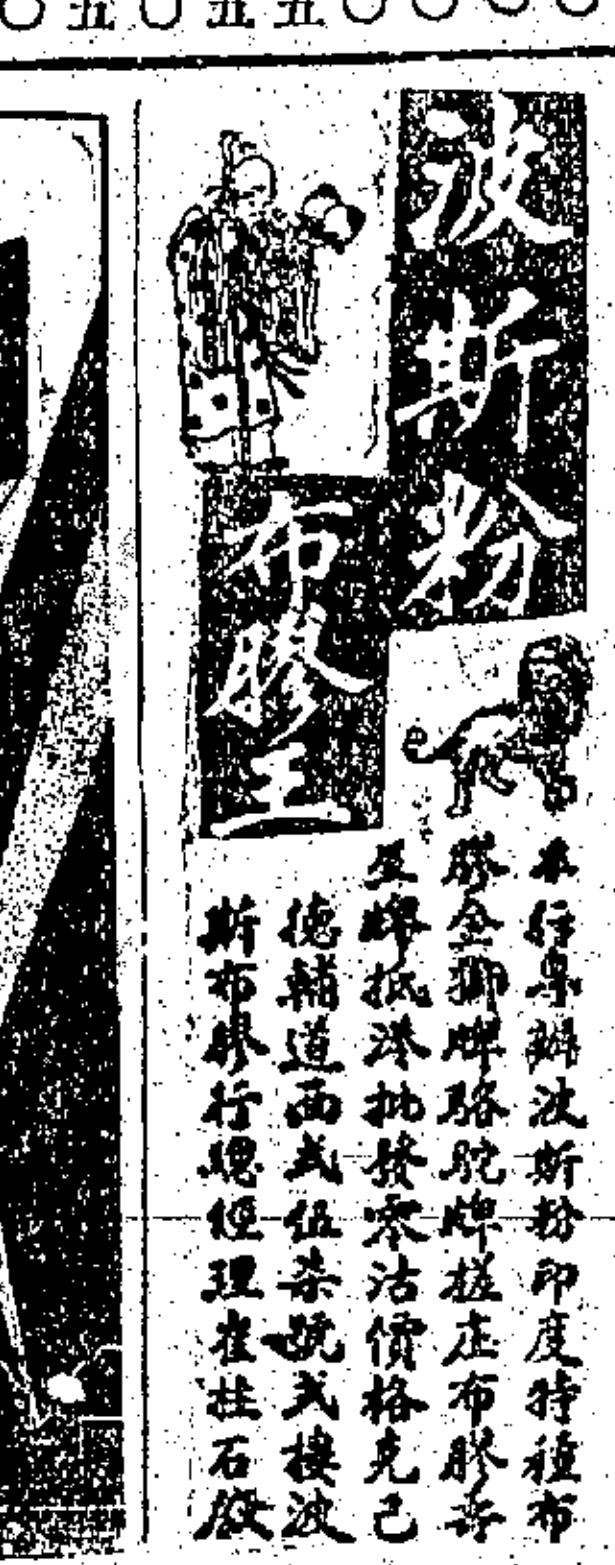 〇五〇五五〇〇〇〇
波斯粉
布膠王
本行專辦波斯粉印度特種布
膠金獅牌駱駝牌搓庄布膠壽
星牌抵港批發零沽價格克己
德輔道西弍伍柒號弍樓波
斯布膠行總經理崔桂石啟